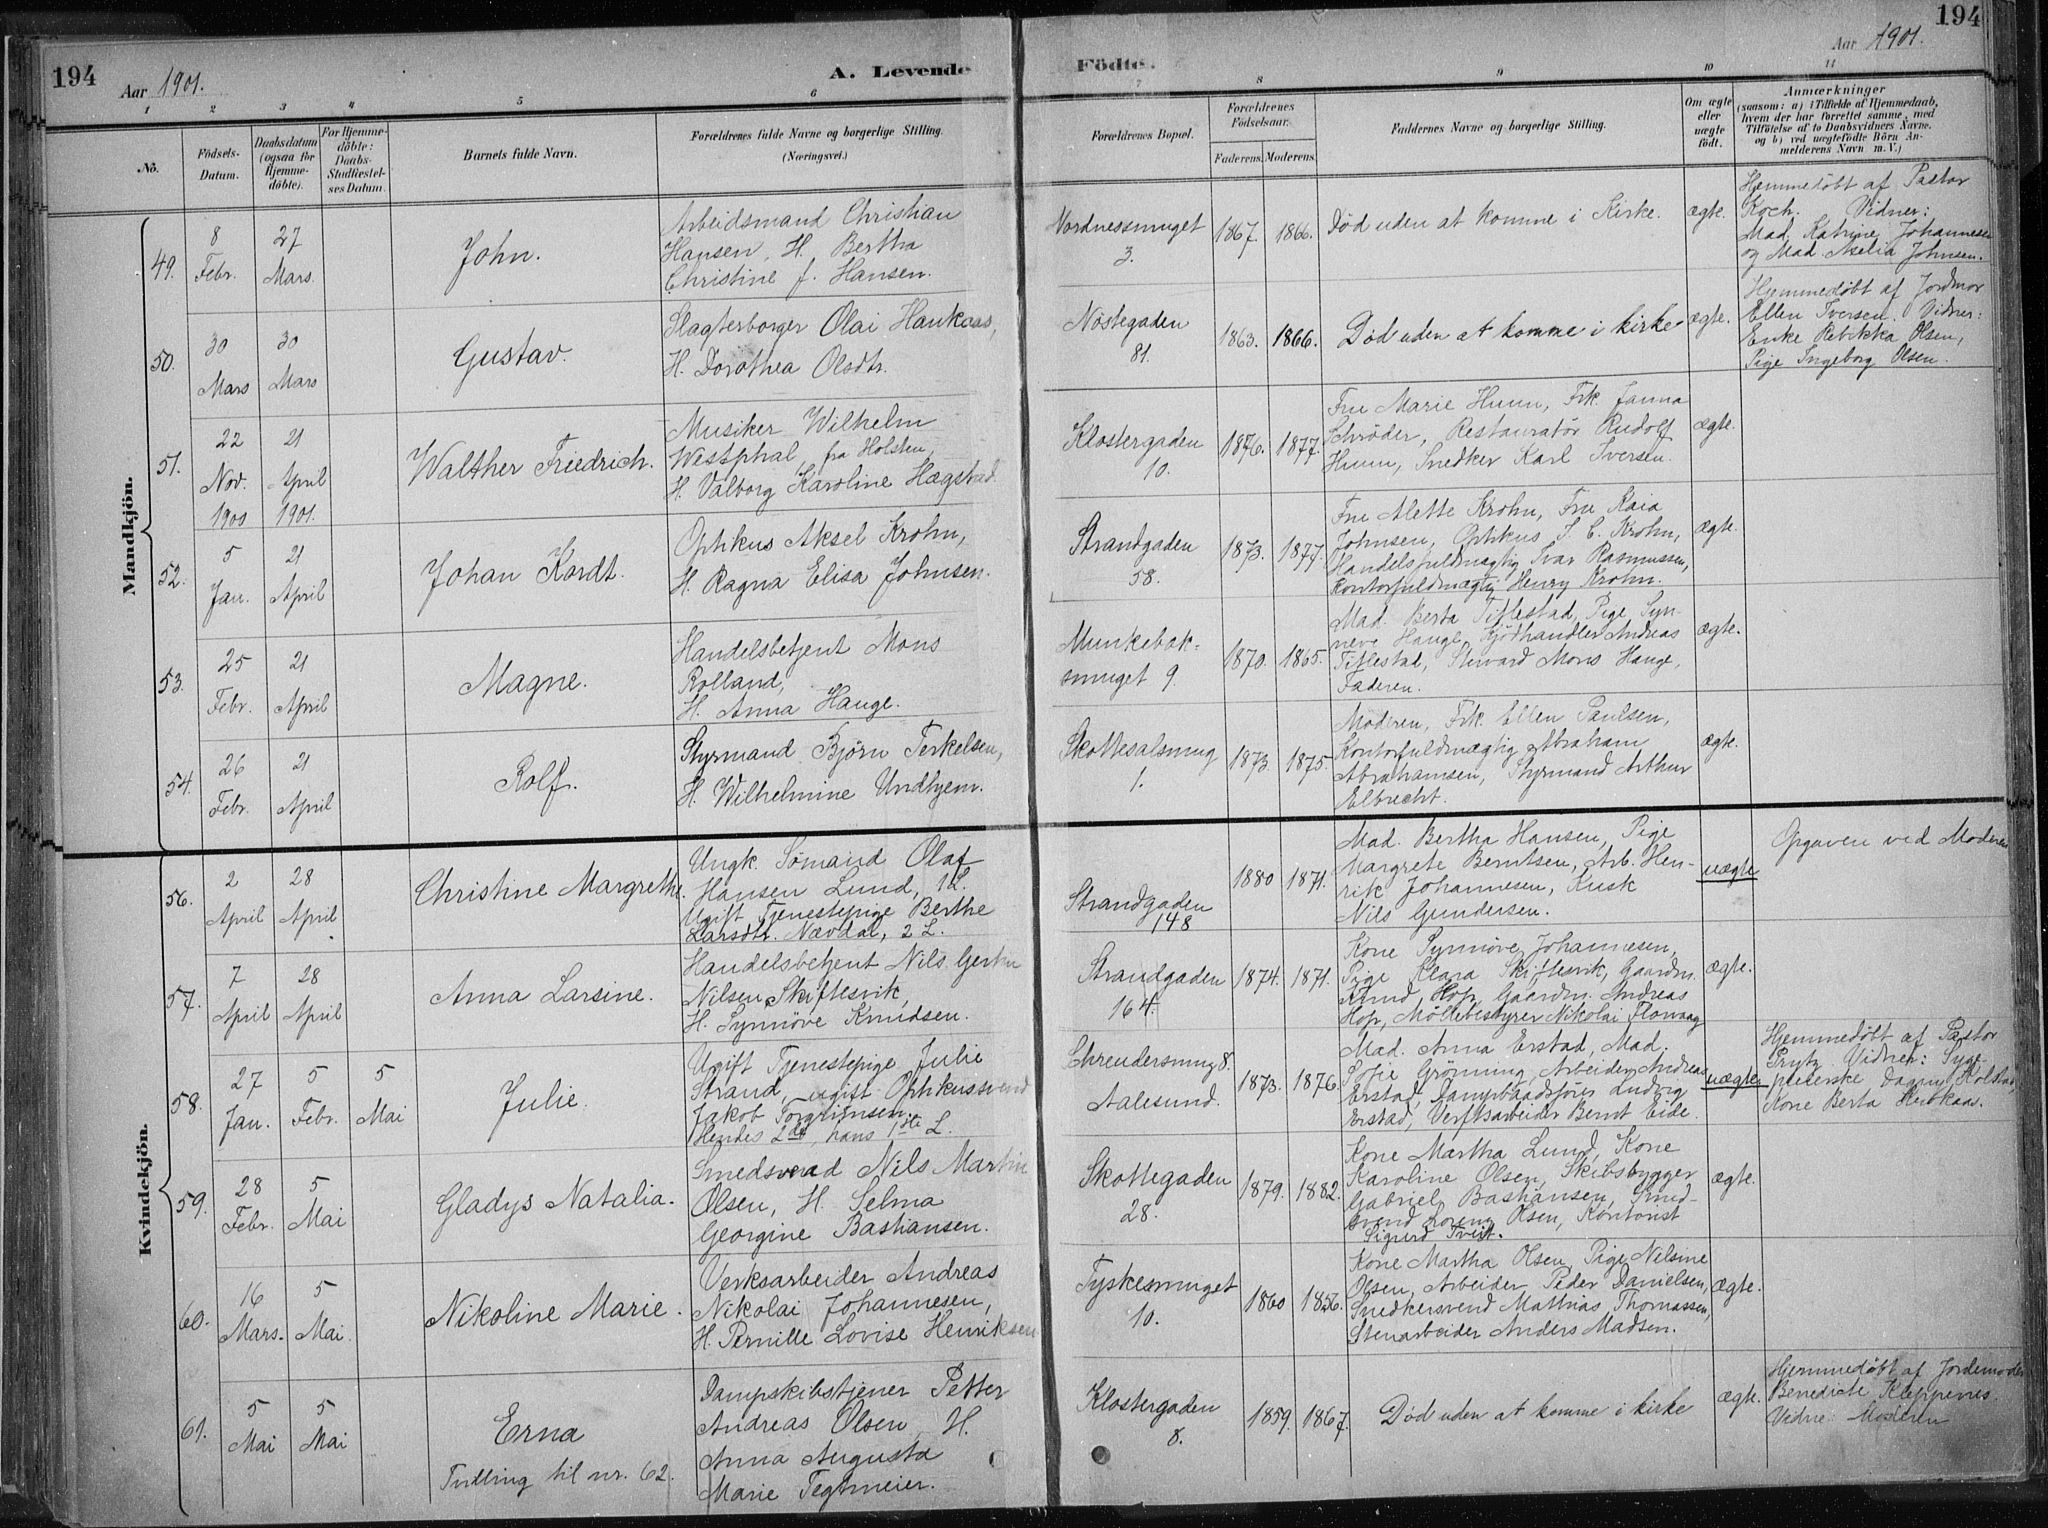 194
Aar 1901.
A. Levende
Födte.
Aar 1901.
194
1 2 3 4 5 6 7 8 9 10 11
No.
Födsels-Datum.
Daabsdatum (ogsaa for Hjemme-döbte).
For Hjemme-döbte: Daabs-Stadfæstel-ses Datum.
Barnets fulde Navn.
Forældrenes fulde Navne og borgerlige Stilling.
(Næringsvei.)
Forældrenes Bopæl.
Forældrenes Födselsaar.
Faderens. Moderens.
Faddernes Navne og borgerlige Stilling.
Om ægte eller uægte født.
Anmærkninger
(saasom: a) i Tilfælde af Hjemmedaab,
hvem der har forrettet samme, med
Tilföielse af to Daabsvidners Navne.
og b) ved uægtefödte Börn An-
melderens Navn m. V.)
Mandkjön.
49.
8 Febr.
27 Mars.
John.
Arbeidsmand Christian
Hansen, H. Bertha
Christine f. Hansen.
Nordnessmuget
3.
1867. 1866.
Død uden at komme i Kirke.
ægte.
Hjemmedøbt af Pastor
Koch. Vidner:
Mad. Katrine Johannesen
og Mad. Johnsen.
50.
30 Mars
30 Mars
Gustav.
Slagterborger Olai Haukaas,
H. Dorothea Olsdtr.
Nöstegaden
81.
1863. 1866.
Død uden at komme i kirke
ægte.
Hjemmedøbt af Jordmor
Ellen Iversen. Vidner:
Enke Rebikka Olsen,
Pige Ingeborg Olsen.
51.
22 Nov. 1900
21 April 1901.
Walther Friedrich.
Musiker Wilhelm
Westphal, fra Holsten,
H. Valborg Karoline Hægstad.
Klostergaden
10.
1876. 1877.
Fru Marie Huun, Frk. Janna
Schrøder, Restauratør Rudolf
Huun, Snedker Karl Iversen.
ægte.
52.
5 Jan.
21 April
Johan Kordt.
Optikus Aksel Krohn,
H. Ragna Elisa Johnsen.
Strandgaden
58.
1873. 1877.
Fru Alette Krohn, Fru Kaia
Johnsen, Optikus J. C. Krohn,
Handelsfuldmægtig Ivar Rasmussen,
Kontorfuldmægtig Henry Krohn.
ægte.
53.
25 Febr.
21 April
Magne.
Handelsbetjent Mons
Rolland,
H. Anna Hauge.
Munkebæk-
smuget 9.
1870. 1865.
Mad. Berta Titlestad, Pige Syn-
neve Hauge, Kjødhandler Andreas
Titlestad, Stuvard Mons Hauge,
Faderen.
ægte.
54.
26 Febr.
21 April
Rolf.
Styrmand Bjørn Terkelsen,
H. Wilhelmine Undhjem.
Skottesalsmug
1.
1873. 1875.
Moderen, Frk. Ellen Paulsen,
Kontorfuldmægtig Abraham
Abrahamsen, Styrmand Arthur
Elbrecht.
ægte.
Kvindekjön.
56.
2 April
28 April
Christine Margrethe.
Ungk. Sømand Olaf
Hansen Lund, 1 L.
Ugift Tjenestepige Berthe
Larsdtr. Nævdal, 2 L.
Strandgaden
148
1880 1871.
Mad. Bertha Hansen, Pige
Margrete Berntsen, Arb. Hen-
rik Johannesen, Kusk
Nils Gundersen.
uægte
Opgaven ved Moderen
57.
7 April
28 April
Anna Larsine.
Handelsbetjent Nils Gerhn
Nilsen Skiftesvik,
H. Synnöve Knudsen.
Strandgaden
164.
1874. 1871.
Kone Synnöve Johannesen,
Pige Klara Skiftesvik, Gaardm.
Knud Hop, Gaardm. Andreas
Hop, Möllebestyrer Nikolai Flowaag
ægte.
58.
27 Jan.
5 Febr.
5 Mai
Julie.
Ugift Tjenestepige Julie
Strand, ugift Optikussvend
Jakob Torgrimsen.
Hendes 2det, hans 1ste L.
Schreudersmug 8.
Aalesund.
1873. 1876.
Mad. Anna Erstad, Mad.
Sofie Grönning, Arbeider Andreas
Erstad, Dampbaadsförer Ludvig
Erstad, Verftsarbeider Bernt Eide.
uægte
Hjemmedøbt af Pastor
Prytz. Vidner: Syge-
pleierske Dagny Holstad,
Kone Berta Haukaas.
59.
28 Febr.
5 Mai
Gladys Natalia.
Smedsvend Nils Martin
Olsen, H. Selma
Georgine Bastiansen.
Skottegaden
28.
1879. 1882.
Kone Martha Lund, Kone
Karoline Olsen, Skibsbygger
Gabriel Bastiansen, Smed-
svend Lorenz Olsen, Kontorist
Sigurd Tveit.
ægte.
60.
16 Mars.
5 Mai.
Nikoline Marie.
Verksarbeider Andreas
Nikolai Johannesen,
H. Pernille Lovise Henriksen
Tyskesmuget
10.
1860 1856.
Kone Martha Olsen, Pige Nilsine
Olsen, Arbeider Peder Danielsen,
Snedkersvend Mathias Thomassen,
Stenarbeider Anders Madsen.
ægte.
61.
5 Mai
5 Mai
Erna
Tvilling til nr. 62.
Dampskibstjener Petter
Andreas Olsen, H.
Anna Augusta
Marie Tegtmeier.
Klostergaden
8.
1859. 1867.
Død uden at komme i kirke
ægte.
Hjemmedøbt af Jordemoder
Benedicte Kleppenes.
Vidne: Moderen